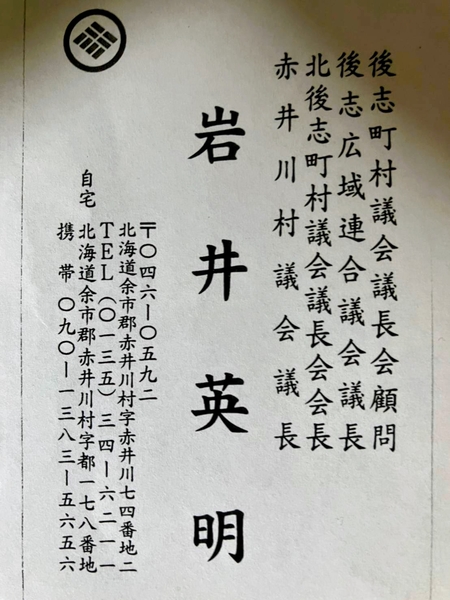 後志町村議会議長会顧問
後志広域連合議会議長
北後志町村議会議長会会長
赤井川村議会議長
岩井英明
〒〇四六ー〇五九二
北海道余市郡赤井川村字赤井川七四番地二
TEL（〇一三五）三四ー六二一一
自宅 北海道余市郡赤井川村字都一七八番地
携帯 〇九〇ー一三八三ー五六五六